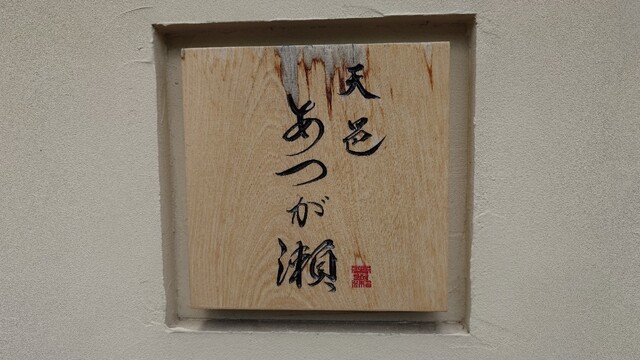 天邑
あつが瀬